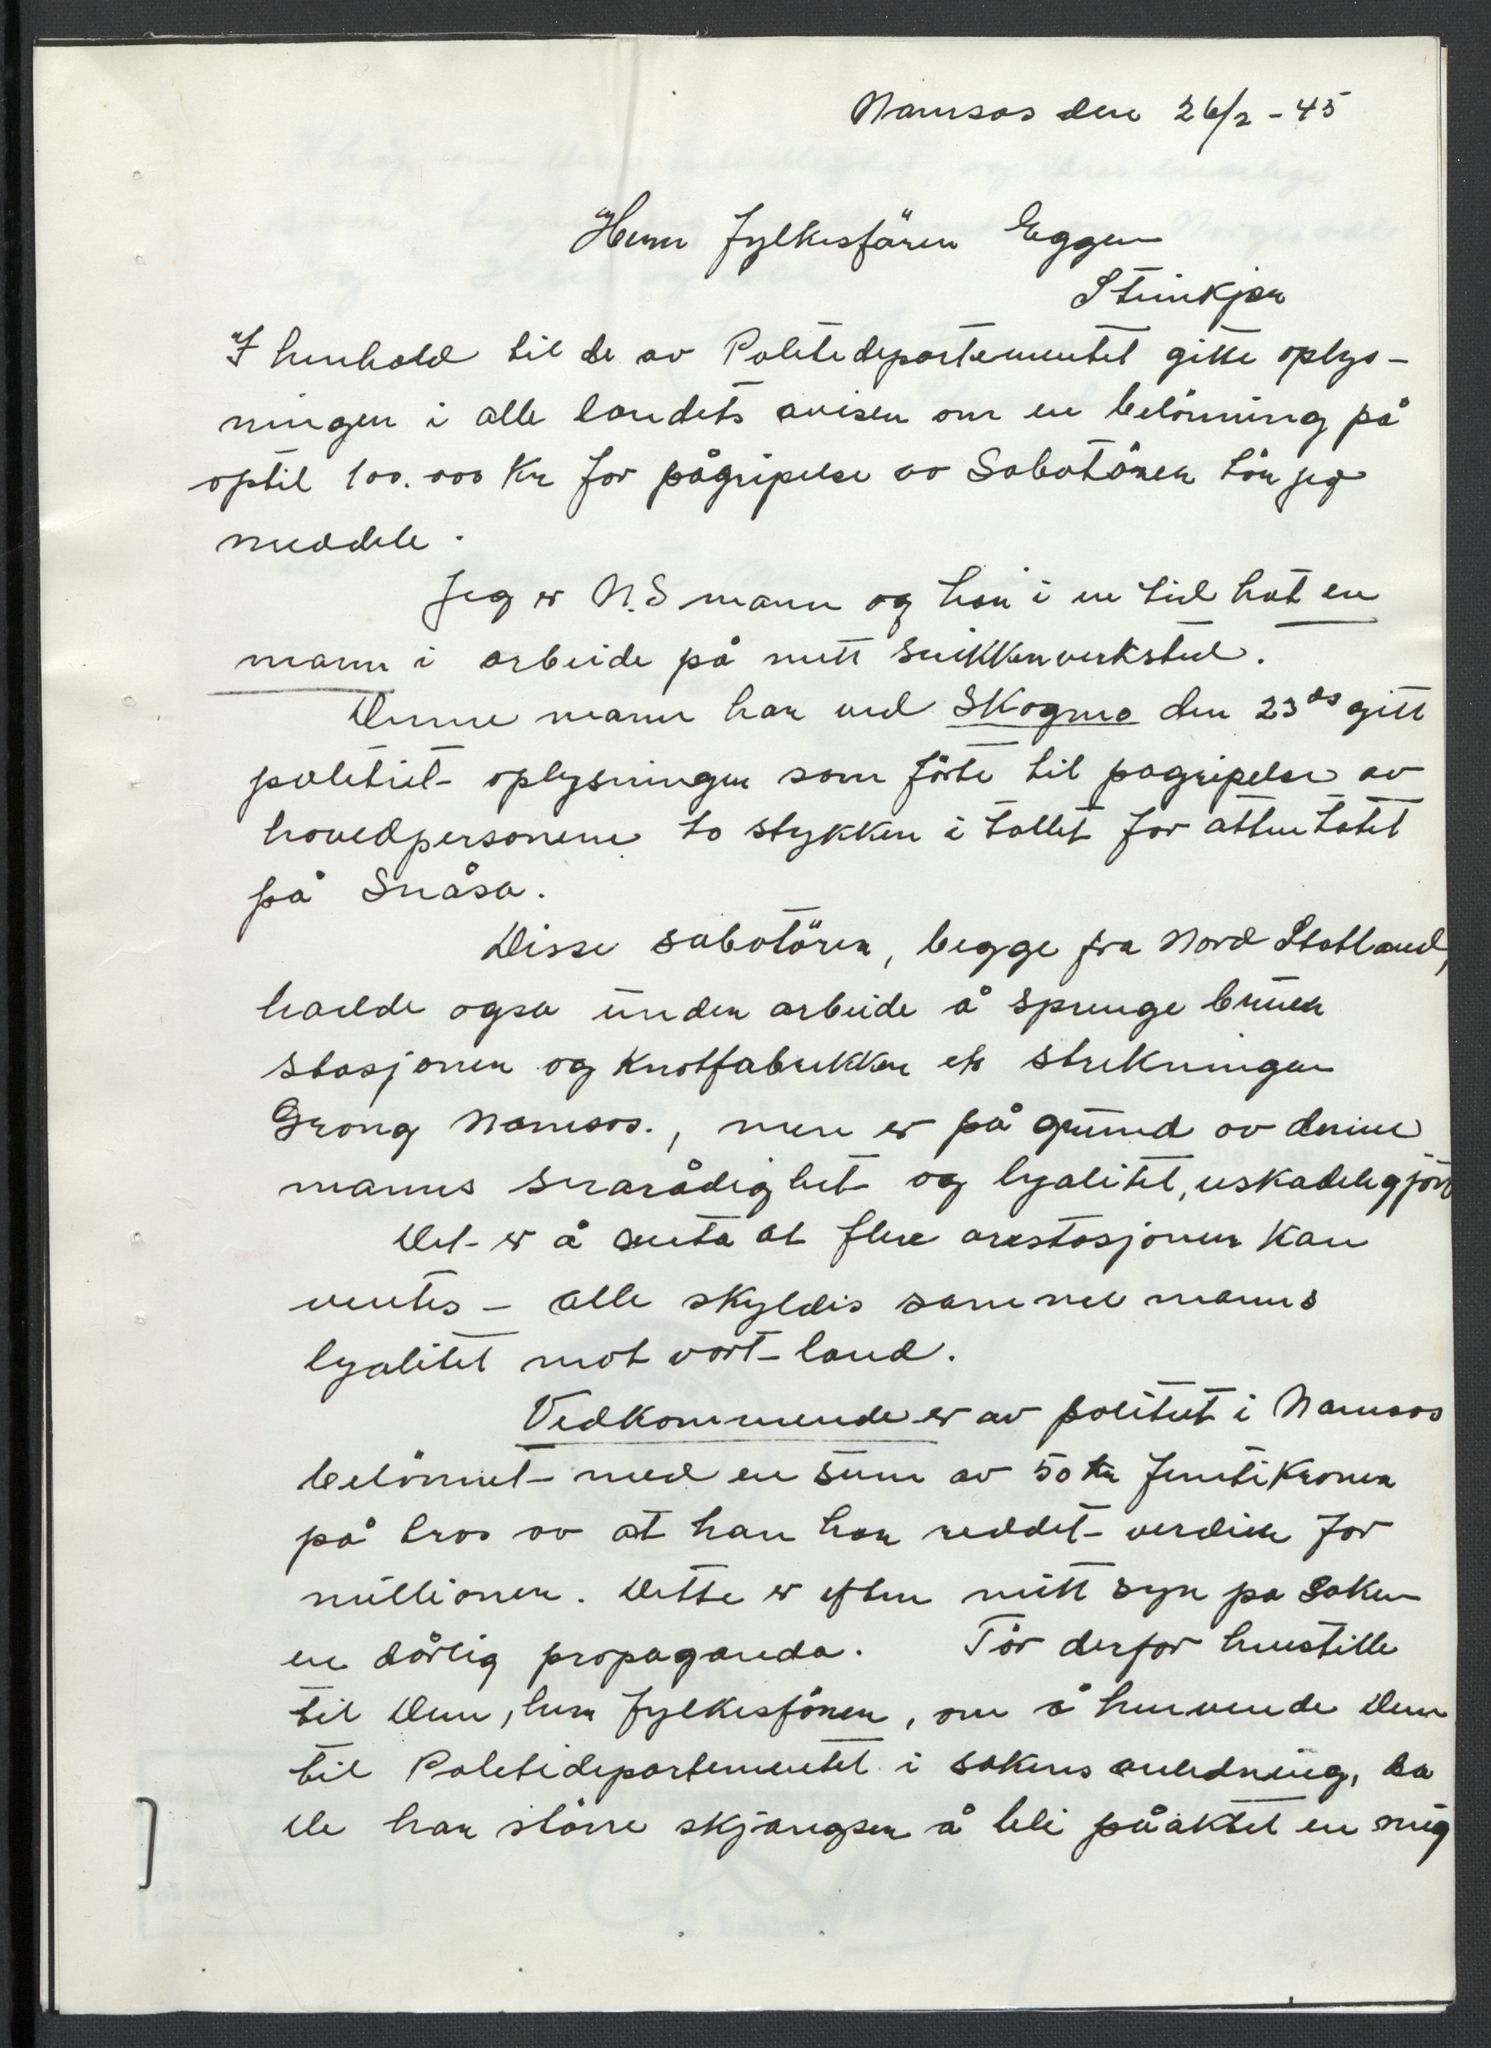 Namsos den 26/2 - 45
Herr Fylkesfören Eggen
Steinkjer
I henhold til de av Politidepartementet gitte oplys-
ninger i alle landets aviser om en belönning på
optil 100.000 Kr for pågripelse av Sabotörer tör jeg
meddele.
Jeg er N.S mann og har i en tid hat en
mann i arbeide på mitt snikkerverksted.
Denne mann har ved Skogmo den 23 ds gitt
politiet oplysninger som förte til pagripelse av
hovedpersonene to stykker i tallet for attentatet
på Snåsa.
Disse sabotörer, begge fra Nord Statland,
hadde ogsa under arbeide å sprenge bruer
stasjoner og Knottfabrikker på strekningen
Grong Namsos., men er på grund av denne
manns snarådighet og lyalitet, uskadeligjört
Det er å anta at flere arestasjoner kan
ventes - alle skyldis samme manns
lyalitet mot vort land.
Vedkommende er av politiet i Namsos
belönnet med en sum av 50 kr femti Kroner
på tros av at han har reddet verdier for
millioner. Dette er efter mitt syn pa Saken
en dårlig propaganda. Tör derfor henstille
til Dem, herr Fylkesförer, om å henvende Dem
til Politidepartementet i sakens anledning, da
De har större skjangser å bli påaktet en mig